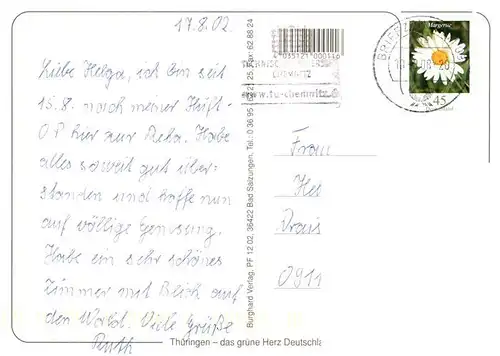 17.8.02
Liebe Helga, ich bin seit
15.8. nach meiner Hüft-
OP hier zur Reha. Habe
alles soweit gut über-
standen und hoffe nun
auf völlige Genesung.
Habe ein sehr schönes
Zimmer mit Blick auf
den Wald. Viele Grüße
Ruth
Burghard Verlag, PF 12 02, 36422 Bad Salzungen, Tel.: 0 36 95 / 62 21 25, Fax: 62 88 24
4 035121 000116
CHEMNITZ
www.tu-chemnitz.de
BRIEFZ
Margerite
45
Frau
Hel
Drais
0911
Thüringen – das grüne Herz Deutschla